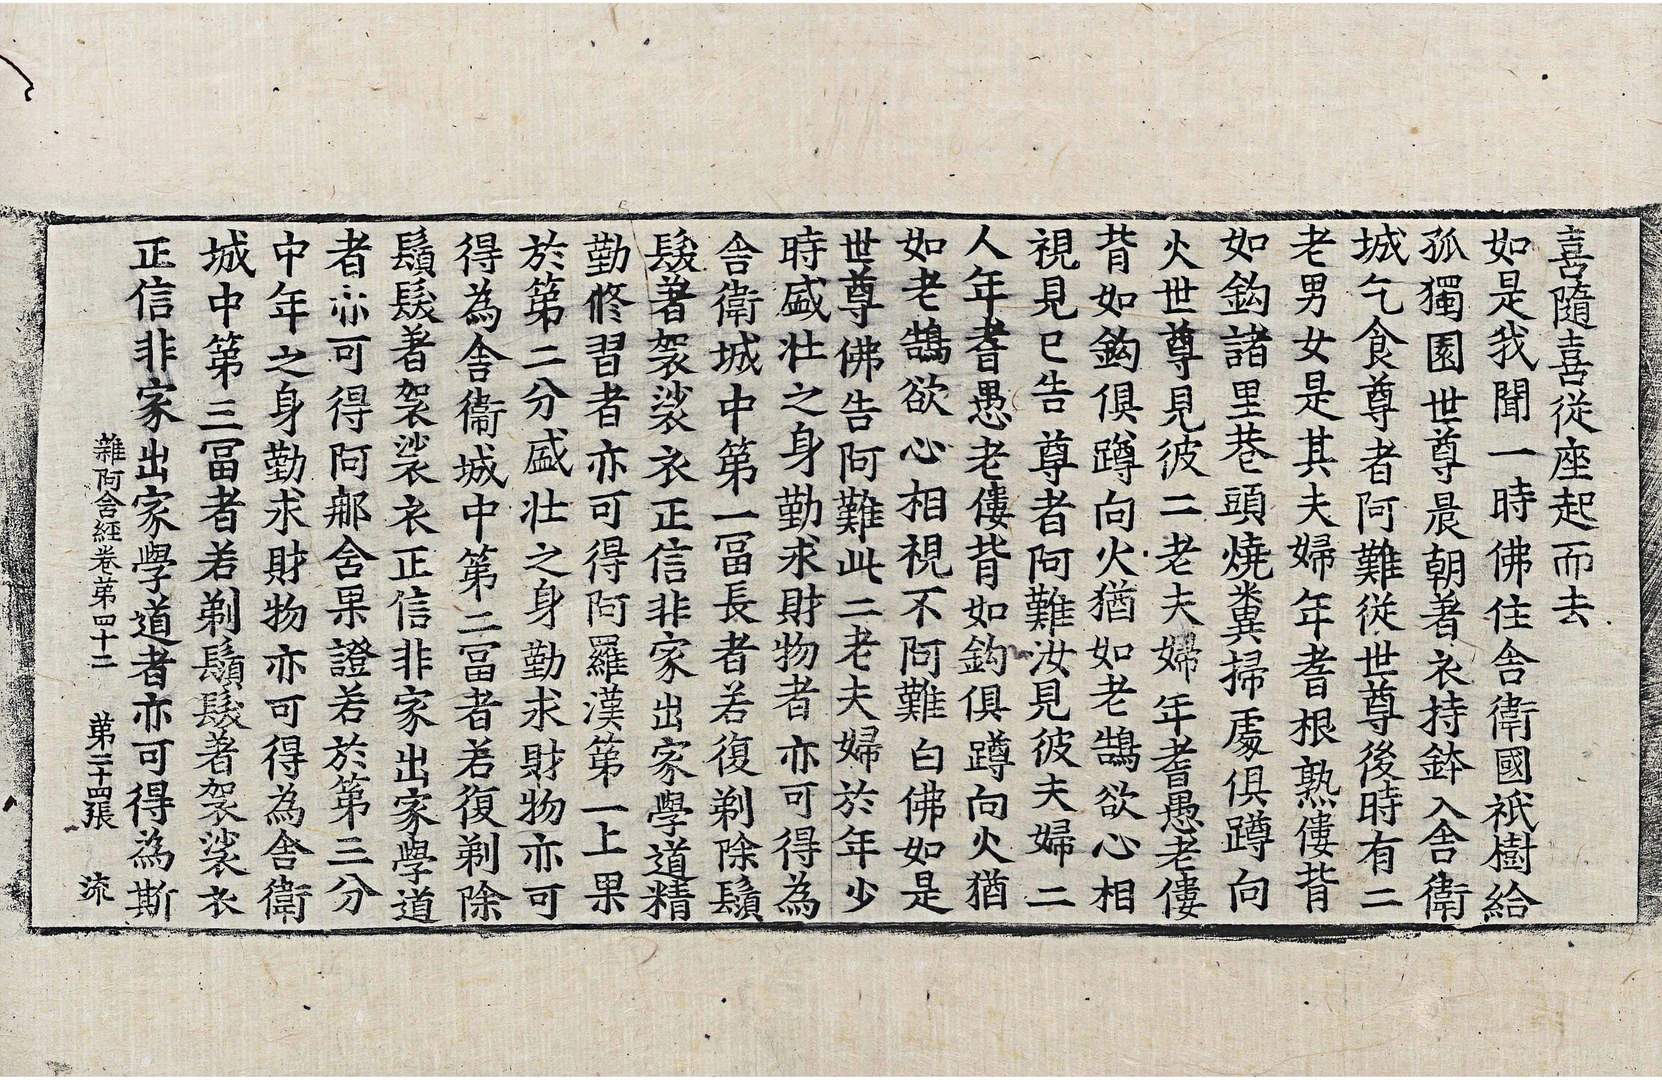 喜隨喜從座起而去
如是我聞一時佛住舍衛國祇樹給
孤獨園世尊晨朝著衣持鉢入舍衛
城乞食尊者阿難從世尊後時有二
老男女是其夫婦年耆根熟僂背
如鈎諸里巷頭燒糞掃處俱蹲向
火世尊見彼二老夫婦年耆愚老僂
背如鈎俱蹲向火猶如老鵠欲心相
視見已告尊者阿難汝見彼夫婦二
人年耆愚老僂背如鈎俱蹲向火猶
如老鵠欲心相視不阿難白佛如是
世尊佛告阿難此二老夫婦於年少
時盛壯之身勤求財物者亦可得為
舍衛城中第一冨長者若復剃除鬚
髮著袈裟衣正信非家出家學道精
勤修習者亦可得阿羅漢第一上果
於第二分盛壯之身勤求財物亦可
得為舍衛城中第二冨者若復剃除
鬚髮著袈裟衣正信非家出家學道
者亦可得阿那含果證若於第三分
中年之身勤求財物亦可得為舍衛
城中第三冨者若剃鬚髮著袈裟衣
正信非家出家學道者亦可得為斯
雜阿含經卷第四十二 第二十四張 流